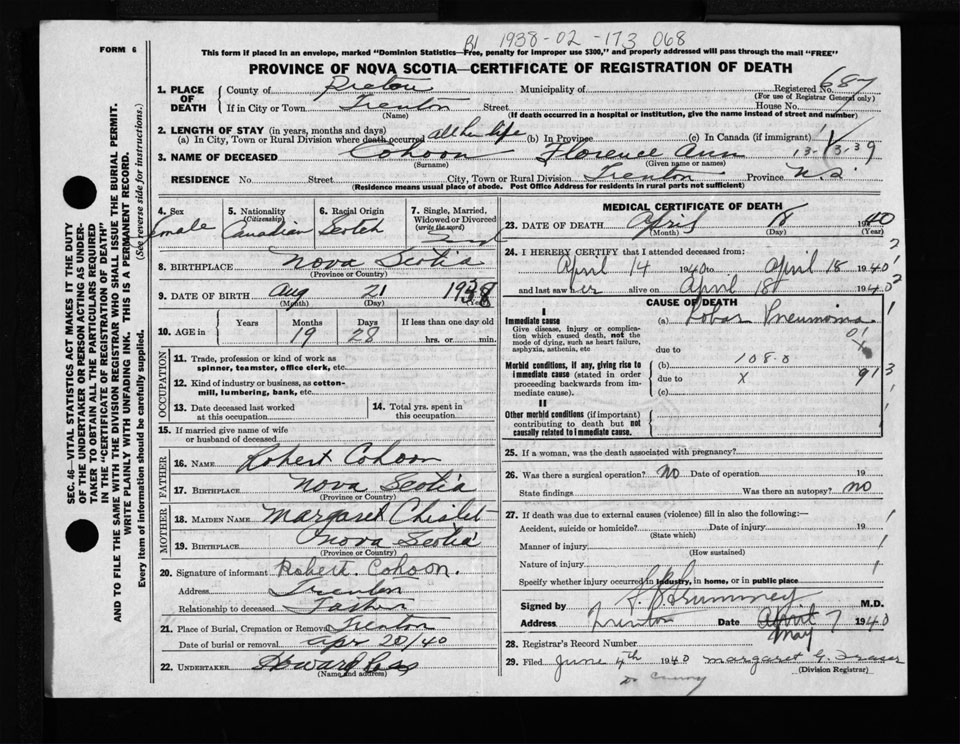 FORM 6
B1 1938-02-173 068
This form if placed in an envelope, marked "Dominion Statistics—Free, penalty for improper use $300," and properly addressed will pass through the mail "FREE"
PROVINCE OF NOVA SCOTIA—CERTIFICATE OF REGISTRATION OF DEATH
1. PLACE OF DEATH County of Pictou Municipality of Registered No. 687
(For use of Registrar General only)
If in City or Town Trenton Street House No.
(Name) (If death occurred in a hospital or institution, give the name instead of street and number)
2. LENGTH OF STAY (in years, months and days)
(a) In City, Town or Rural Division where death occurred all her life (b) In Province (c) In Canada (if immigrant)
3. NAME OF DECEASED Cohoon Florence Ann 13-1/3-39
(Surname) (Given name or names)
RESIDENCE No. Street City, Town or Rural Division Trenton Province N.S.
(Residence means usual place of abode. Post Office Address for residents in rural parts not sufficient)
SEC. 46—VITAL STATISTICS ACT MAKES IT THE DUTY
OF THE UNDERTAKER OR PERSON ACTING AS UNDER-
TAKER TO OBTAIN ALL THE PARTICULARS REQUIRED
IN THE "CERTIFICATE OF REGISTRATION OF DEATH"
AND TO FILE THE SAME WITH THE DIVISION REGISTRAR WHO SHALL ISSUE THE BURIAL PERMIT.
WRITE PLAINLY WITH UNFADING INK. THIS IS A PERMANENT RECORD.
Every item of information should be carefully supplied. (See reverse side for instructions.)
4. Sex
Female
5. Nationality
(Citizenship)
Canadian
6. Racial Origin
Scotch
7. Single, Married,
Widowed or Divorced
(write the word)
8. BIRTHPLACE Nova Scotia
(Province or Country)
9. DATE OF BIRTH Aug 21 1938
(Month) (Day) (Year)
10. AGE in Years Months Days If less than one day old
19 28 hrs. or min.
OCCUPATION
11. Trade, profession or kind of work as
spinner, teamster, office clerk, etc.
12. Kind of industry or business, as cotton-
mill, lumbering, bank, etc.
13. Date deceased last worked
at this occupation
14. Total yrs. spent in
this occupation
15. If married give name of wife
or husband of deceased
FATHER
16. NAME Robert Cohoon
17. BIRTHPLACE Nova Scotia
(Province or Country)
MOTHER
18. MAIDEN NAME Margaret Chislet
19. BIRTHPLACE Nova Scotia
(Province or Country)
20. Signature of informant Robert. Cohoon.
Address Trenton
Relationship to deceased Father
21. Place of Burial, Cremation or Removal Trenton
Date of burial or removal Apr 20/40
22. UNDERTAKER Howard
(Name and address)
MEDICAL CERTIFICATE OF DEATH
23. DATE OF DEATH April 18 1940
(Month) (Day) (Year)
24. I HEREBY CERTIFY that I attended deceased from:
April 14 1940 to April 18 1940
and last saw her alive on April 18 1940
CAUSE OF DEATH
I
Immediate cause (a) Lobar Pneumonia
Give disease, injury or complica-
tion which caused death, not the
mode of dying, such as heart failure,
asphyxia, asthenia, etc
due to
Morbid conditions, if any, giving rise to (b) 108.0
immediate cause (stated in order due to X 913
proceeding backwards from im-
mediate cause). (c)
II
Other morbid conditions (if important)
contributing to death but not
causally related to immediate cause.
25. If a woman, was the death associated with pregnancy?
26. Was there a surgical operation? No Date of operation 19
State findings Was there an autopsy? no
27. If death was due to external causes (violence) fill in also the following:—
Accident, suicide or homicide? Date of injury 19
(State which)
Manner of injury
(How sustained)
Nature of injury
Specify whether injury occurred in industry, in home, or in public place
Signed by M.D.
Address Trenton Date April May 7 1940
28. Registrar's Record Number
29. Filed June 4th 1940 Margaret G. Fraser
(Division Registrar)